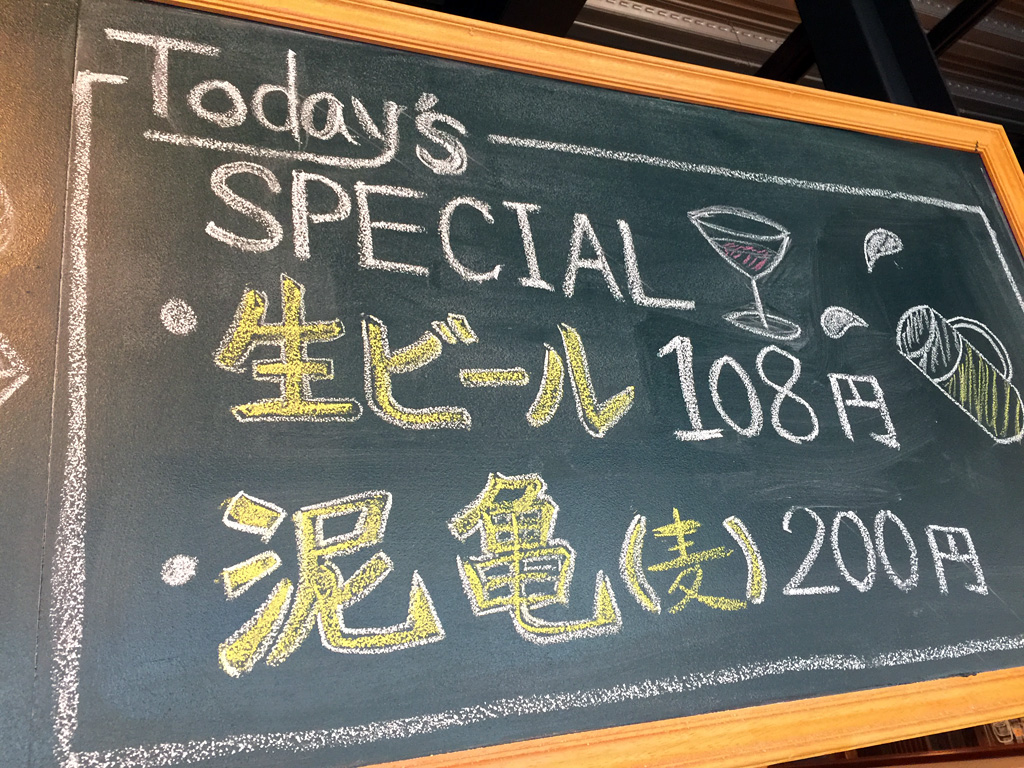 Today's
SPECIAL
・生ビール 108円
・泥亀(麦) 200円